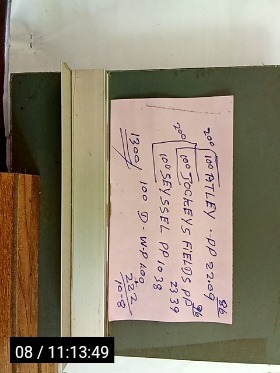 96
200 100 ATLEY - PP 22.09
200 100 JOCKEYS FIELDS PP 96
23 39
100 SEYSSEL PP 10 38
1300 100 D - W-P 400
22.2
10-8
08 / 11:13:49